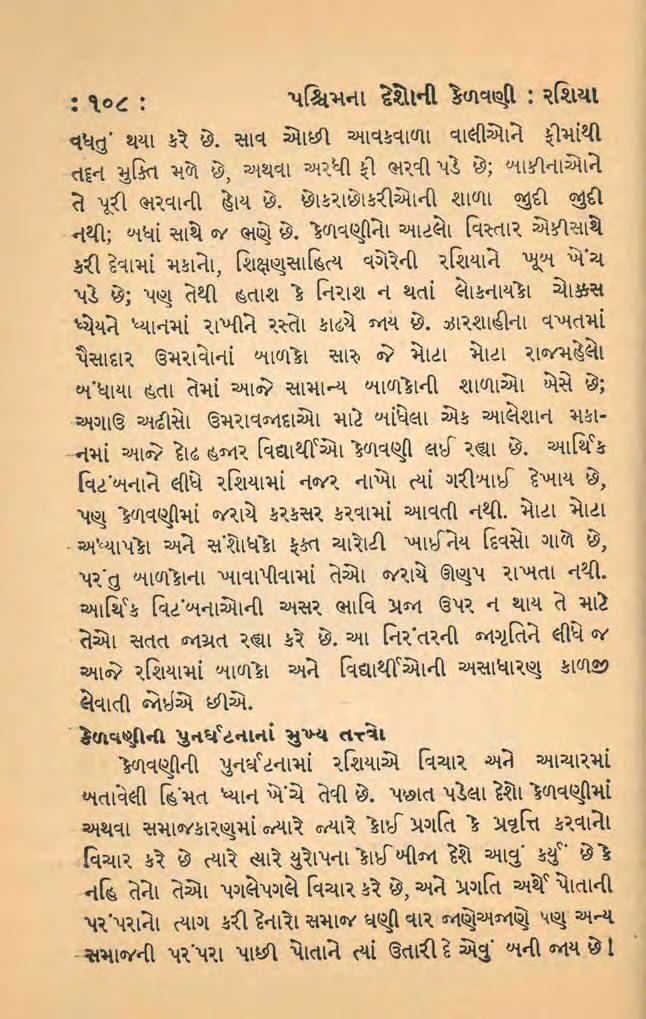 : ૧૦૮ : પશ્ચિમના દેશોની કેળવણી : રશિયા
વધતું થયા કરે છે. સાવ ઓછી આવકવાળા વાલીઓને ફીમાંથી
તદ્દન મુક્તિ મળે છે, અથવા અરધી ફી ભરવી પડે છે; બાકીનાઓને
તે પૂરી ભરવાની હોય છે. છોકરાછોકરીઓની શાળા જુદી જુદી
નથી; બધાં સાથે જ ભણે છે. કેળવણીનો આટલો વિસ્તાર એકીસાથે
કરી દેવામાં મકાનો, શિક્ષણસાહિત્ય વગેરેની રશિયાને ખૂબ ખેંચ
પડે છે; પણ તેથી હતાશ કે નિરાશ ન થતાં લોકનાયકો ચોક્કસ
ધ્યેયને ધ્યાનમાં રાખીને રસ્તો કાઢયે જાય છે. ઝારશાહીના વખતમાં
પૈસાદાર ઉમરાવોનાં બાળકો સારુ જે મોટા મોટા રાજમહેલો
બંધાયા હતા તેમાં આજે સામાન્ય બાળકોની શાળાઓ બેસે છે;
અગાઉ અઢીસો ઉમરાવજાદાઓ માટે બાંધેલા એક આલેશાન મકા-
નમાં આજે દોઢ હજાર વિદ્યાર્થીઓ કેળવણી લઈ રહ્યા છે. આર્થિક
વિટંબનાને લીધે રશિયામાં નજર નાખો ત્યાં ગરીબાઈ દેખાય છે,
પણ કેળવણીમાં જરાયે કરકસર કરવામાં આવતી નથી. મોટા મોટા
અધ્યાપકો અને સંશોધકો ફક્ત ચારોટી ખાઈનેય દિવસો ગાળે છે,
પરંતુ બાળકોના ખાવાપીવામાં તેઓ જરાયે ઊણપ રાખતા નથી.
આર્થિક વિટંબનાઓની અસર ભાવિ પ્રજા ઉપર ન થાય તે માટે
તેઓ સતત જાગ્રત રહ્યા કરે છે. આ નિરંતરની જાગૃતિને લીધે જ
આજે રશિયામાં બાળકો અને વિદ્યાર્થીઓની અસાધારણ કાળજી
લેવાતી જોઈએ છીએ.
કેળવણીની પુનર્ઘટનાનાં મુખ્ય તત્ત્વો
કેળવણીની પુનર્ઘટનામાં રશિયાએ વિચાર અને આચારમાં
બતાવેલી હિંમત ધ્યાન ખેંચે તેવી છે. પછાત પડેલા દેશો કેળવણીમાં
અથવા સમાજકારણમાં જ્યારે જ્યારે કોઈ પ્રગતિ કે પ્રવૃત્તિ કરવાનો
વિચાર કરે છે ત્યારે ત્યારે યુરોપના કોઈ બીજા દેશે આવું કર્યું છે કે
નહિ તેનો તેઓ પગલેપગલે વિચાર કરે છે, અને પ્રગતિ અર્થે પોતાની
પરંપરાનો ત્યાગ કરી દેનારો સમાજ ઘણી વાર જાણેઅજાણે પણ અન્ય
સમાજની પરંપરા પાછી પોતાને ત્યાં ઉતારી દે એવું બની જાય છે!